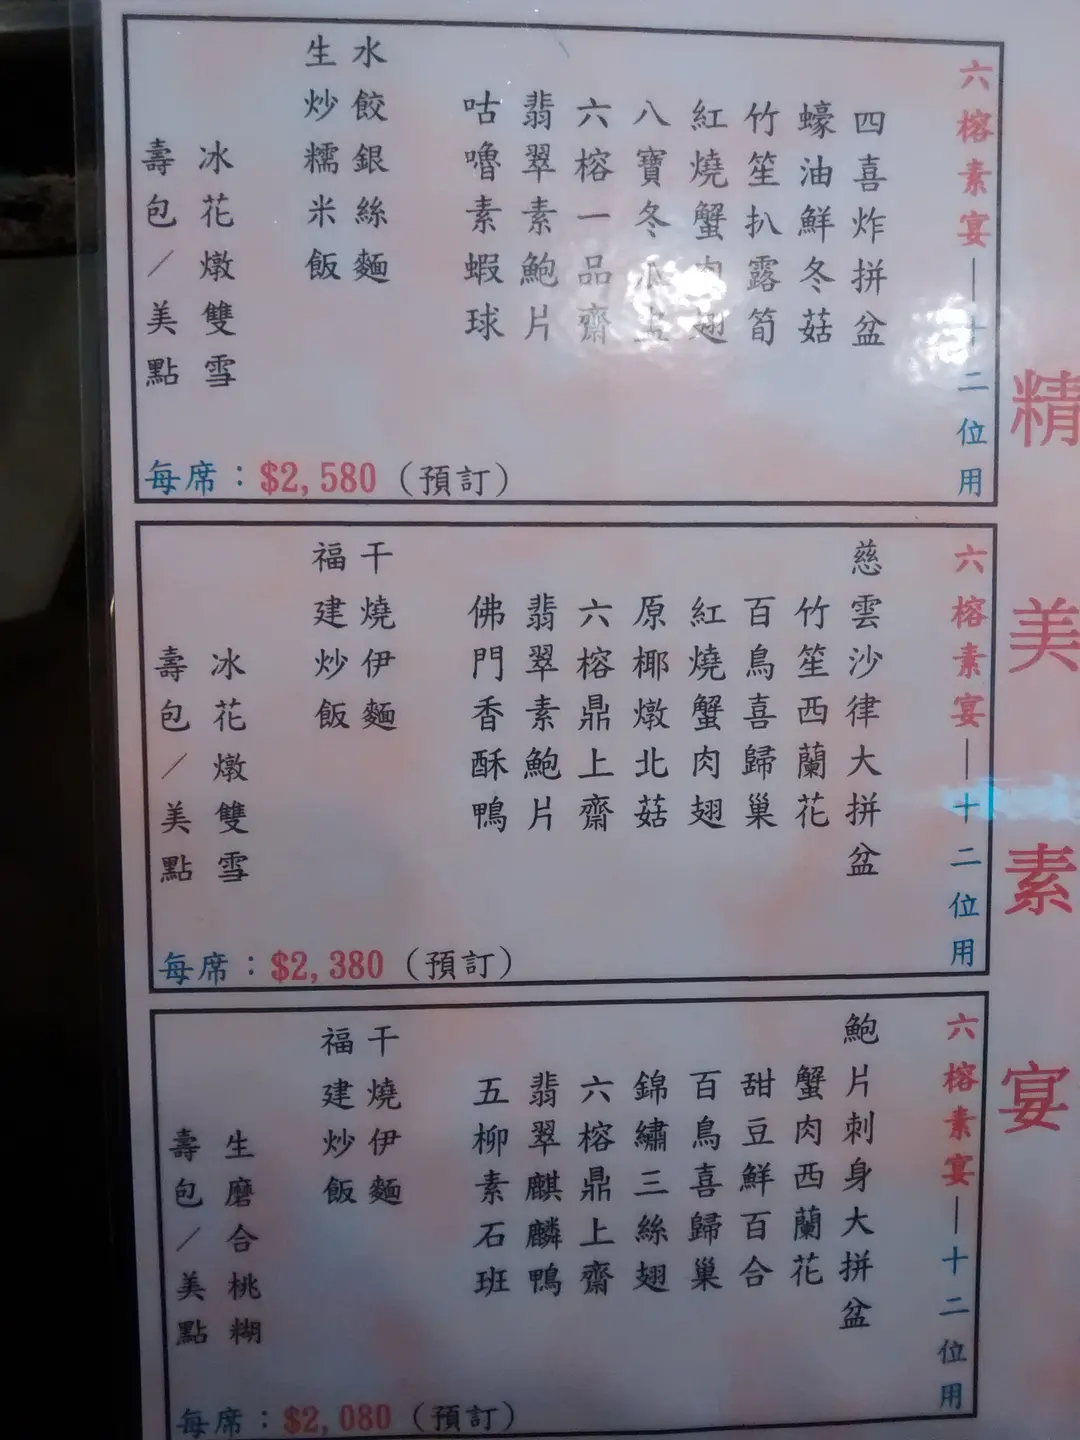 精美素宴
六榕素宴—十二位用
四喜炸拼盆
蠔油鮮冬菇
竹笙扒露筍
紅燒蟹肉翅
八寶冬瓜盅
六榕一品齋
翡翠素鮑片
咕嚕素蝦球
水餃銀絲麵
生炒糯米飯
冰花燉雙雪
壽包/美點
每席：$2,580（預訂）
六榕素宴—十二位用
慈雲沙律大拼盆
竹笙西蘭花
百鳥喜歸巢
紅燒蟹肉翅
原椰燉北菇
六榕鼎上齋
翡翠素鮑片
佛門香酥鴨
干燒伊麵
福建炒飯
冰花燉雙雪
壽包/美點
每席：$2,380（預訂）
六榕素宴—十二位用
鮑片刺身大拼盆
蟹肉西蘭花
甜豆鮮百合
百鳥喜歸巢
錦繡三絲翅
六榕鼎上齋
翡翠麒麟鴨
五柳素石班
干燒伊麵
福建炒飯
生磨合桃糊
壽包/美點
每席：$2,080（預訂）